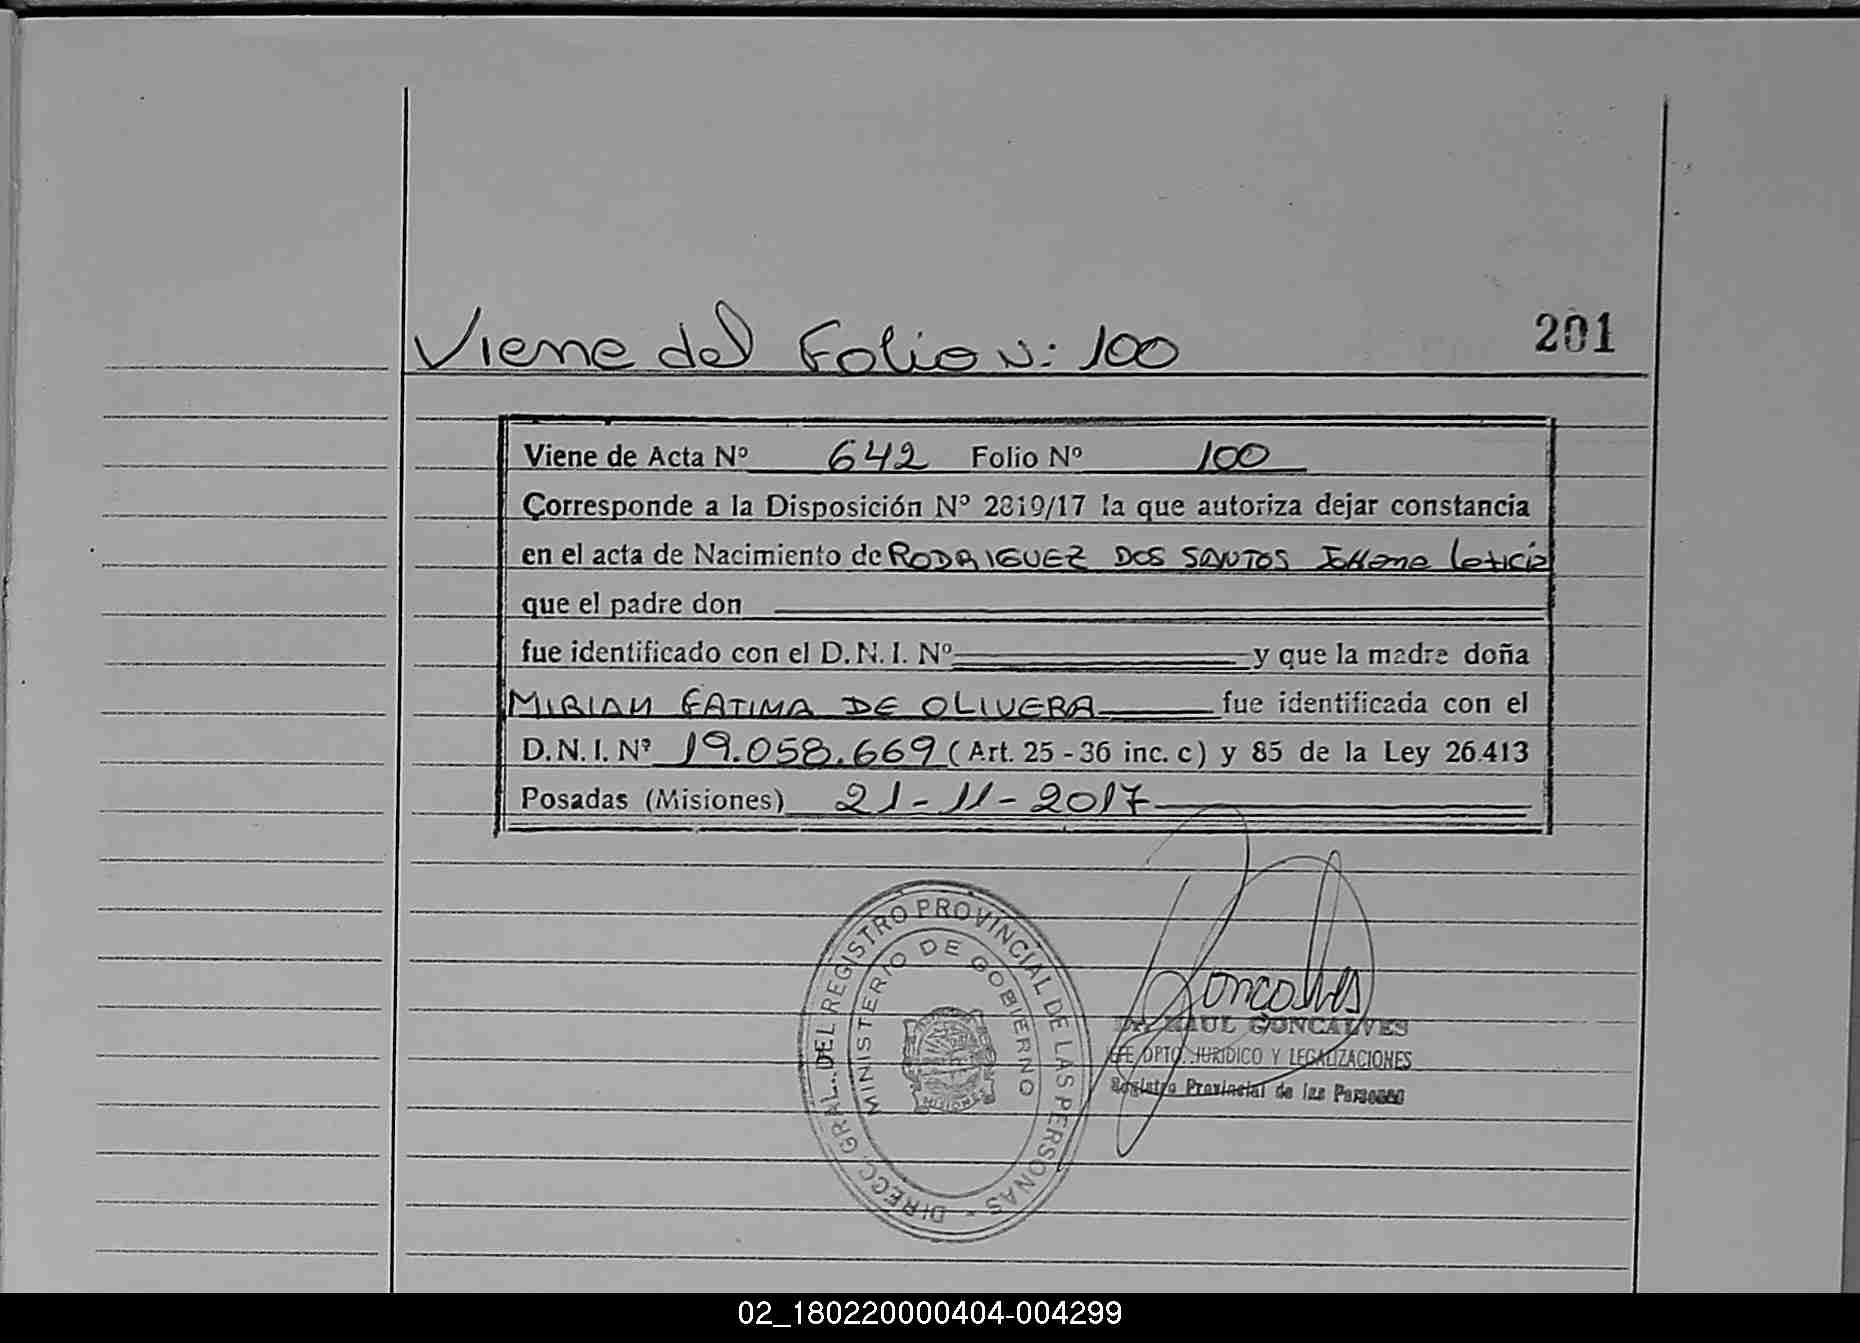 Viene del Folio N: 100
201
Viene de Acta Nº 642 Folio Nº 100
Corresponde a la Disposición Nº 2819/17 la que autoriza dejar constancia
en el acta de Nacimiento de RODRIGUEZ DOS SANTOS Leticia
que el padre don
fue identificado con el D. N. I. Nº y que la madre doña
MIRIAM FATIMA DE OLIVERA fue identificada con el
D. N. I. Nº 19.058.669 (Art. 25 - 36 inc. c) y 85 de la Ley 26.413
Posadas (Misiones) 21-11-2017
DIRECC. GRAL. DEL REGISTRO PROVINCIAL DE LAS PERSONAS
MINISTERIO DE GOBIERNO
MISIONES
Goncalves
Dr. RAUL GONCALVES
JEFE DPTO. JURIDICO Y LEGALIZACIONES
Registro Provincial de las Personas
02_180220000404-004299